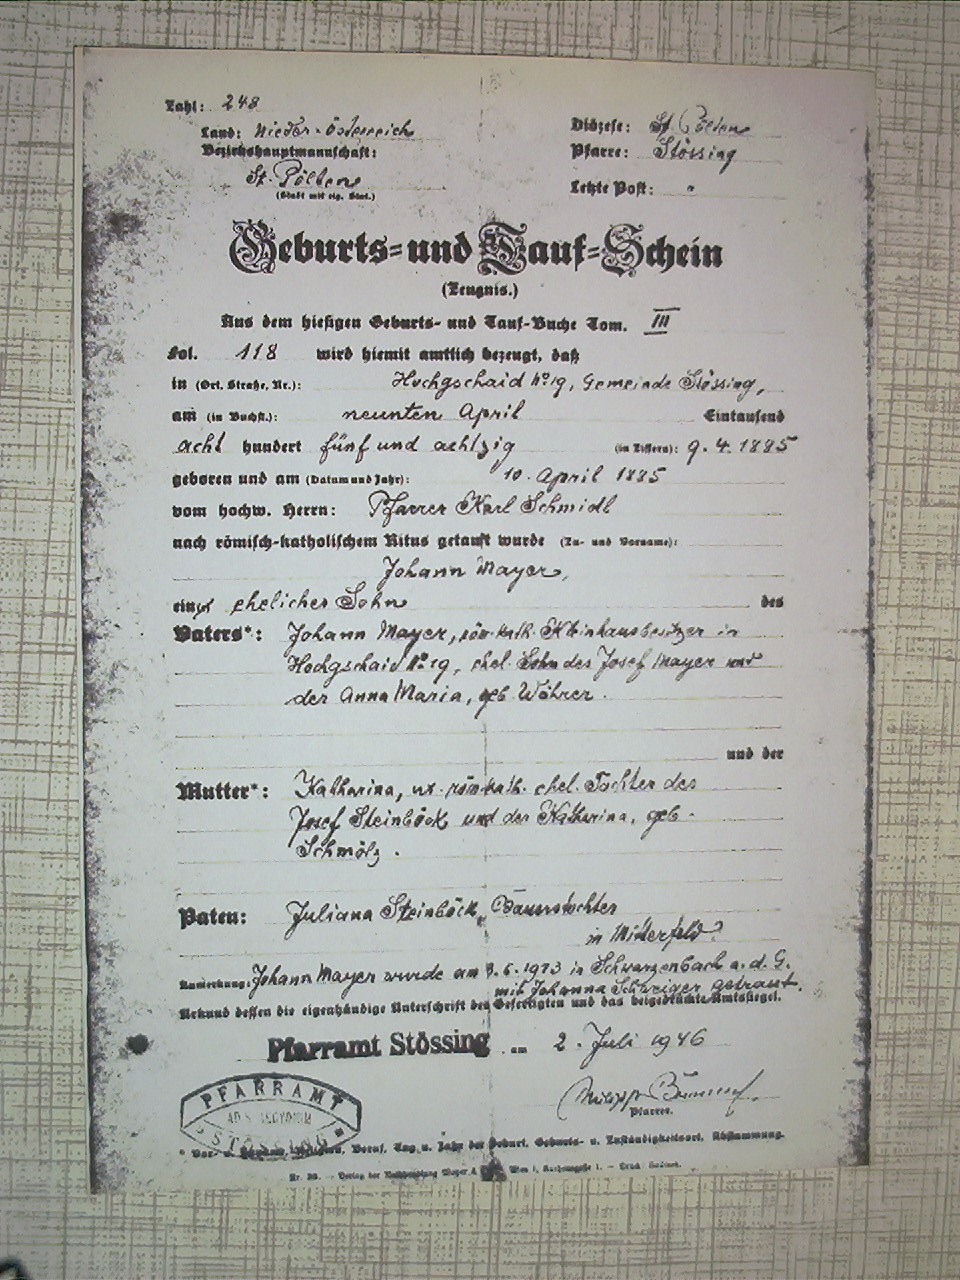 Zahl: 248
Land: Nieder-Österreich
Diözese: St. Pölten
Bezirkshauptmannschaft:
Pfarre: Stössing
St. Pölten
(Stadt mit eig. Stat.)
Letzte Post: "
Geburts- und Tauf-Schein
(Zeugnis.)
Aus dem hiesigen Geburts- und Tauf-Buche Tom. III
Fol. 118 wird hiemit amtlich bezeugt, daß
in (Ort, Straße, Nr.): Hochgschaid No 19, Gemeinde Stössing,
am (in Buchst.): neunten April Eintausend
acht hundert fünf und achtzig (in Ziffern): 9. 4. 1885
geboren und am (Datum und Jahr): 10. April 1885
vom hochw. Herrn: Pfarrer Karl Schmidl
nach römisch-katholischem Ritus getauft wurde (Zu- und Vorname):
Johann Mayer,
ein ehelicher Sohn des
Vaters*: Johann Mayer, röm. kath. Kleinhausbesitzer in
Hochgschaid No 19, ehel. Sohn des Josef Mayer und
der Anna Maria, geb. Wöhrer.
und der
Mutter*: Katharina, röm. kath. ehel. Tochter des
Josef Steinböck und der Katharina, geb.
Schmölz.
Paten: Juliana Steinböck, Bauerstochter
in Mitterfeld
Anmerkung: Johann Mayer wurde am in Schwarzenbach a. d. G.
mit Johanna Schweiger getraut.
Urkund dessen die eigenhändige Unterschrift des Gefertigten und das beigedrückte Amtssiegel.
Pfarramt Stössing am 2. Juli 1946
PFARRAMT
STÖSSING
Pfarrer.
* Vor- u. Zuname, Religion, Beruf, Tag u. Jahr der Geburt, Geburts- u. Zuständigkeitsort, Abstammung.